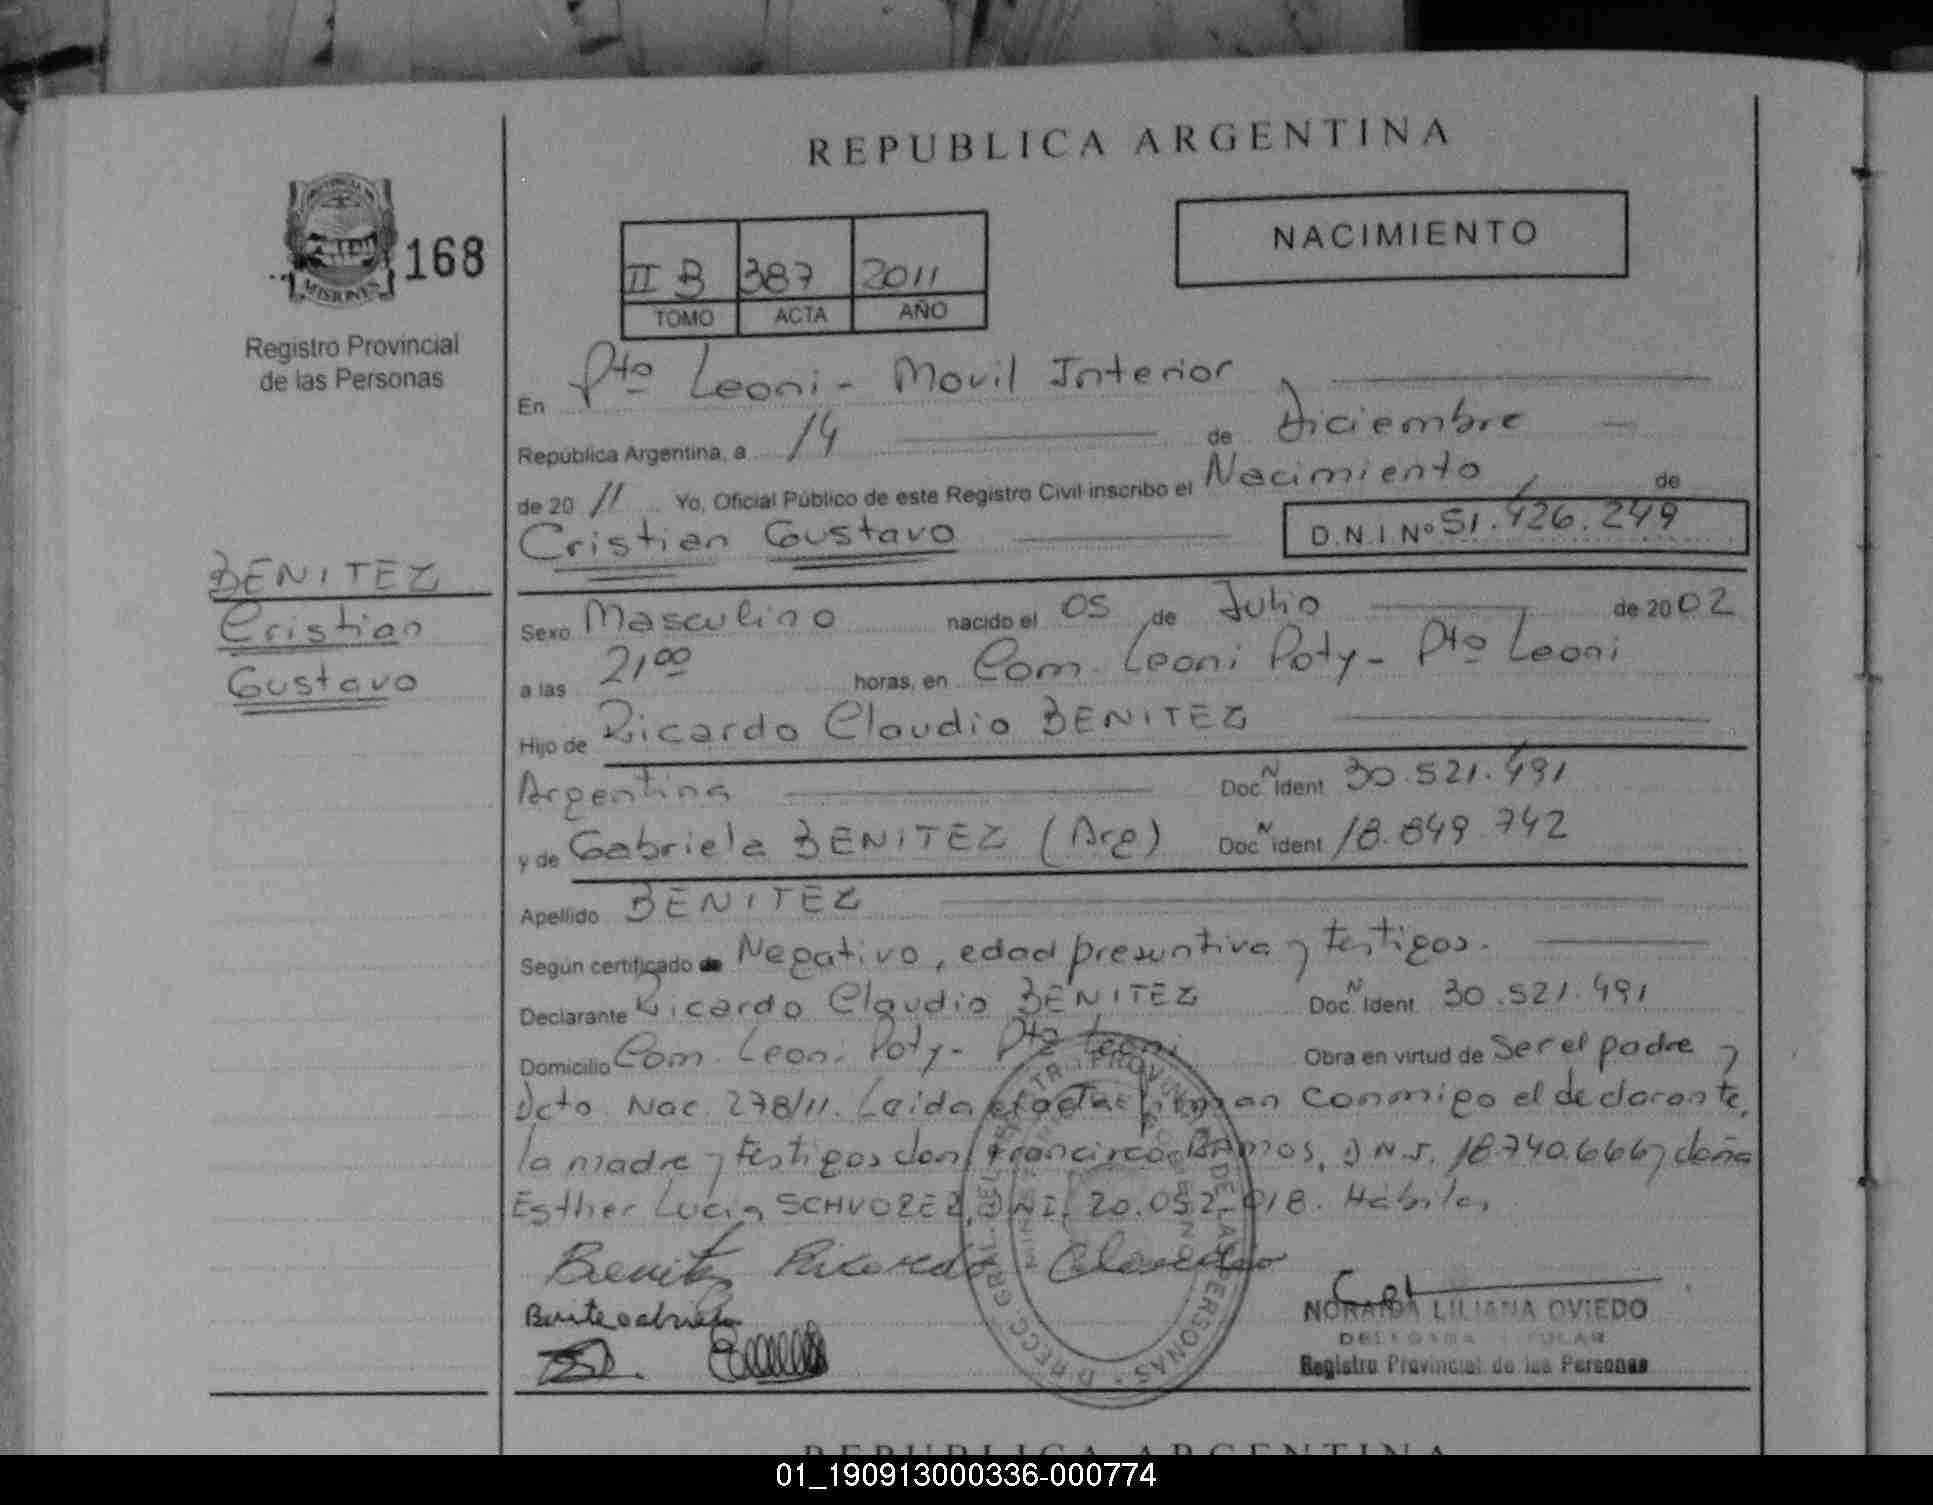 REPUBLICA ARGENTINA
NACIMIENTO
MISIONES
168
Registro Provincial
de las Personas
II B 387 2011
TOMO ACTA AÑO
En Pto Leoni - Movil Interior
República Argentina, a 14 de Diciembre
de 20 11 Yo, Oficial Público de este Registro Civil inscribo el Nacimiento de
Cristian Gustavo D.N.I Nº 51.426.249
BENITEZ
Cristian
Gustavo
Sexo Masculino nacido el 05 de Julio de 20 02
a las 21 00 horas, en Com. Leoni Poty - Pto Leoni
Hijo de Ricardo Claudio BENITEZ
Argentina Doc N Ident 30.521.491
y de Gabriela BENITEZ (Arg) Doc N Ident 18.849.742
Apellido BENITEZ
Según certificado de Negativo, edad presuntiva y testigos.
Declarante Ricardo Claudio BENITEZ Doc N Ident. 30.521.491
Domicilio Com. Leoni Poty - Pto Leoni Obra en virtud de Ser el padre y
Dcto Nac. 278/11. Leida el acta firman conmigo el declarante,
la madre y testigos don Francisco RAMOS, D.N.I. 18.740.666 y doña
Esther Lucia D.N.I. 20.052.018. Hábiles
Benitez Ricardo Claudio
NORAIDA LILIANA OVIEDO
DELEGADA TITULAR
Registro Provincial de las Personas
REPUBLICA ARGENTINA
01_190913000336-000774